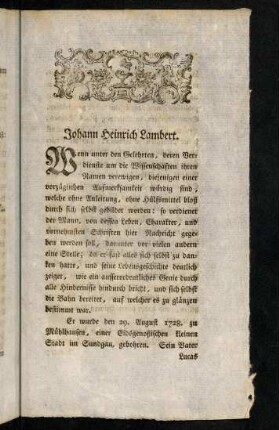 Johann Heinrich Lambert.
Wenn unter den Gelehrten, deren Ver-
dienste um die Wissenschaften ihren
Namen verewigen, diejenigen einer
vorzüglichen Aufmerksamkeit würdig sind,
welche ohne Anleitung, ohne Hülfsmittel bloß
durch sich selbst gebildet worden: so verdienet
der Mann, von dessen Leben, Charakter, und
vornehmsten Schriften hier Nachricht gege-
ben werden soll, darunter vor vielen andern
eine Stelle; da er fast alles sich selbst zu dan-
ken hatte, und seine Lebensgeschichte deutlich
zeiget, wie ein ausserordentliches Genie durch
alle Hindernisse hindurch bricht, und sich selbst
die Bahn bereitet, auf welcher es zu glänzen
bestimmt war.
Er wurde den 29. August 1728. zu
Mühlhausen, einer Eidsgenoßischen kleinen
Stadt im Sundgau, gebohren. Sein Vater
Lucas